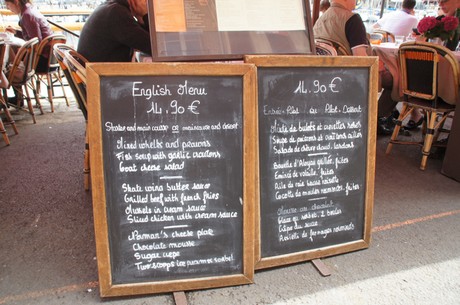 English Menu
14.90 €
Starter and main course or main course and dessert
Sliced whelks and prawns
Fish soup with garlic croutons
Goat cheese salad
Skate wing butter sauce
Grilled beef with french fries
Mussels in cream sauce
Sliced chicken with creame sauce
Norman's cheese plate
Chocolate mousse
Sugar crepe
Two scoops ice cream or sorbet
14.90 €
Entrée Plat ou Plat Dessert
Assiette de bulots et crevettes
Soupe de poissons et croutons
Salade de chèvre chaud
Bavette d'Aloyau grillée, frites
Emincé de volaille, frites
Aile de raie
Cocotte de moules normandes, frites
2 boules
Crêpe au sucre
Assiette de fromages normands